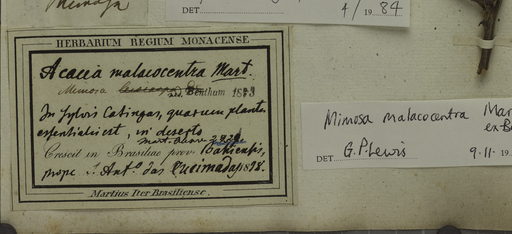 Mimosa
DET. 4/ 19 84
HERBARIUM REGIUM MONACENSE
Acacia malacocentra Mart.
Mimosa Bentham 18
In sylvis Catingas, quarum planta
essentialis est, in deserto
Crescit in Brasiliae prov. Bahiensis,
prope Ant.º das Queimadas 1818.
Martius Iter Brasiliense.
Mimosa malacocentra Mar
ex B
DET. G.P. Lewis 9·11· 19